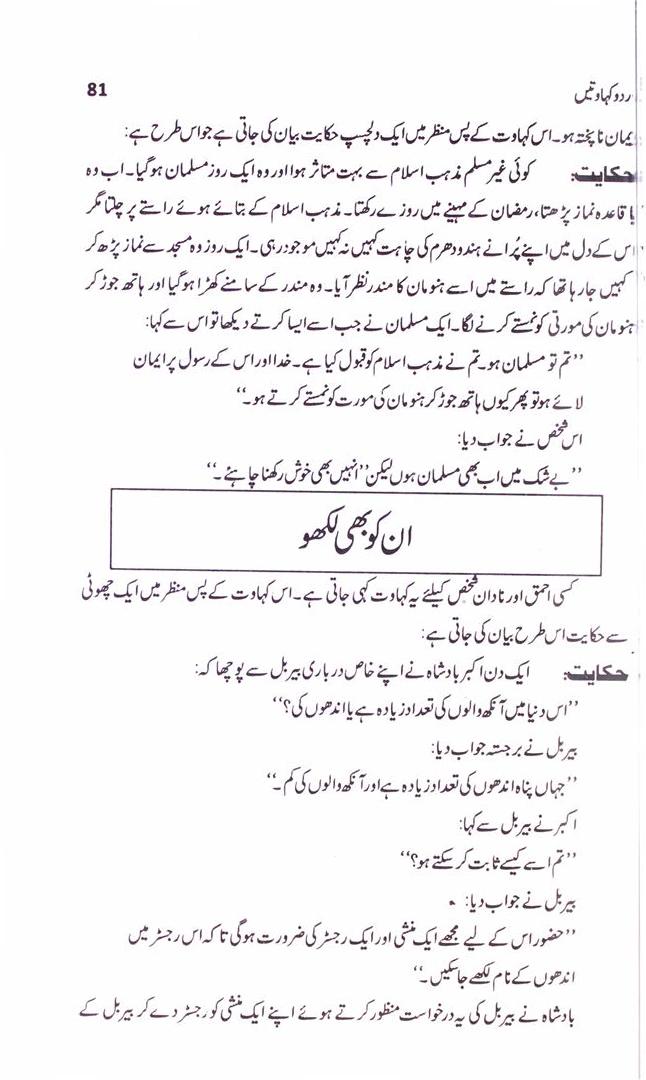 ردو کہاوتیں 81
یمان ناپختہ ہو۔ اس کہاوت کے پس منظر میں ایک دلچسپ حکایت بیان کی جاتی ہے جو اس طرح ہے:
حکایت: کوئی غیر مسلم مذہب اسلام سے بہت متاثر ہوا اور وہ ایک روز مسلمان ہو گیا۔ اب وہ
با قاعدہ نماز پڑھتا، رمضان کے مہینے میں روزے رکھتا۔ مذہب اسلام کے بتائے ہوئے راستے پر چلتا مگر
اس کے دل میں اپنے پُرانے ہندو دھرم کی چاہت کہیں نہ کہیں موجود رہی۔ ایک روز وہ مسجد سے نماز پڑھ کر
کہیں جا رہا تھا کہ راستے میں اسے ہنومان کا مندر نظر آیا۔ وہ مندر کے سامنے کھڑا ہو گیا اور ہاتھ جوڑ کر
ہنومان کی مورتی کو نمستے کرنے لگا۔ ایک مسلمان نے جب اسے ایسا کرتے دیکھا تو اس سے کہا:
’’تم تو مسلمان ہو۔ تم نے مذہب اسلام کو قبول کیا ہے۔ خدا اور اس کے رسول پر ایمان
لائے ہو تو پھر کیوں ہاتھ جوڑ کر ہنومان کی مورت کو نمستے کرتے ہو۔‘‘
اس شخص نے جواب دیا:
’’بے شک میں اب بھی مسلمان ہوں لیکن ’’انہیں بھی خوش رکھنا چاہئے۔‘‘
ان کو بھی لکھو
کسی احمق اور نادان شخص کیلئے یہ کہاوت کہی جاتی ہے۔ اس کہاوت کے پس منظر میں ایک چھوٹی
سے حکایت اس طرح بیان کی جاتی ہے:
حکایت: ایک دن اکبر بادشاہ نے اپنے خاص درباری بیربل سے پوچھا کہ:
’’اس دنیا میں آنکھ والوں کی تعداد زیادہ ہے یا اندھوں کی؟‘‘
بیربل نے برجستہ جواب دیا:
’’جہاں پناہ اندھوں کی تعداد زیادہ ہے اور آنکھ والوں کی کم۔‘‘
اکبر نے بیربل سے کہا:
’’تم اسے کیسے ثابت کر سکتے ہو؟‘‘
بیربل نے جواب دیا:
’’حضور اس کے لیے مجھے ایک منشی اور ایک رجسٹر کی ضرورت ہو گی تا کہ اس رجسٹر میں
اندھوں کے نام لکھے جا سکیں۔‘‘
بادشاہ نے بیربل کی یہ درخواست منظور کرتے ہوئے اپنے ایک منشی کو رجسٹر دے کر بیربل کے